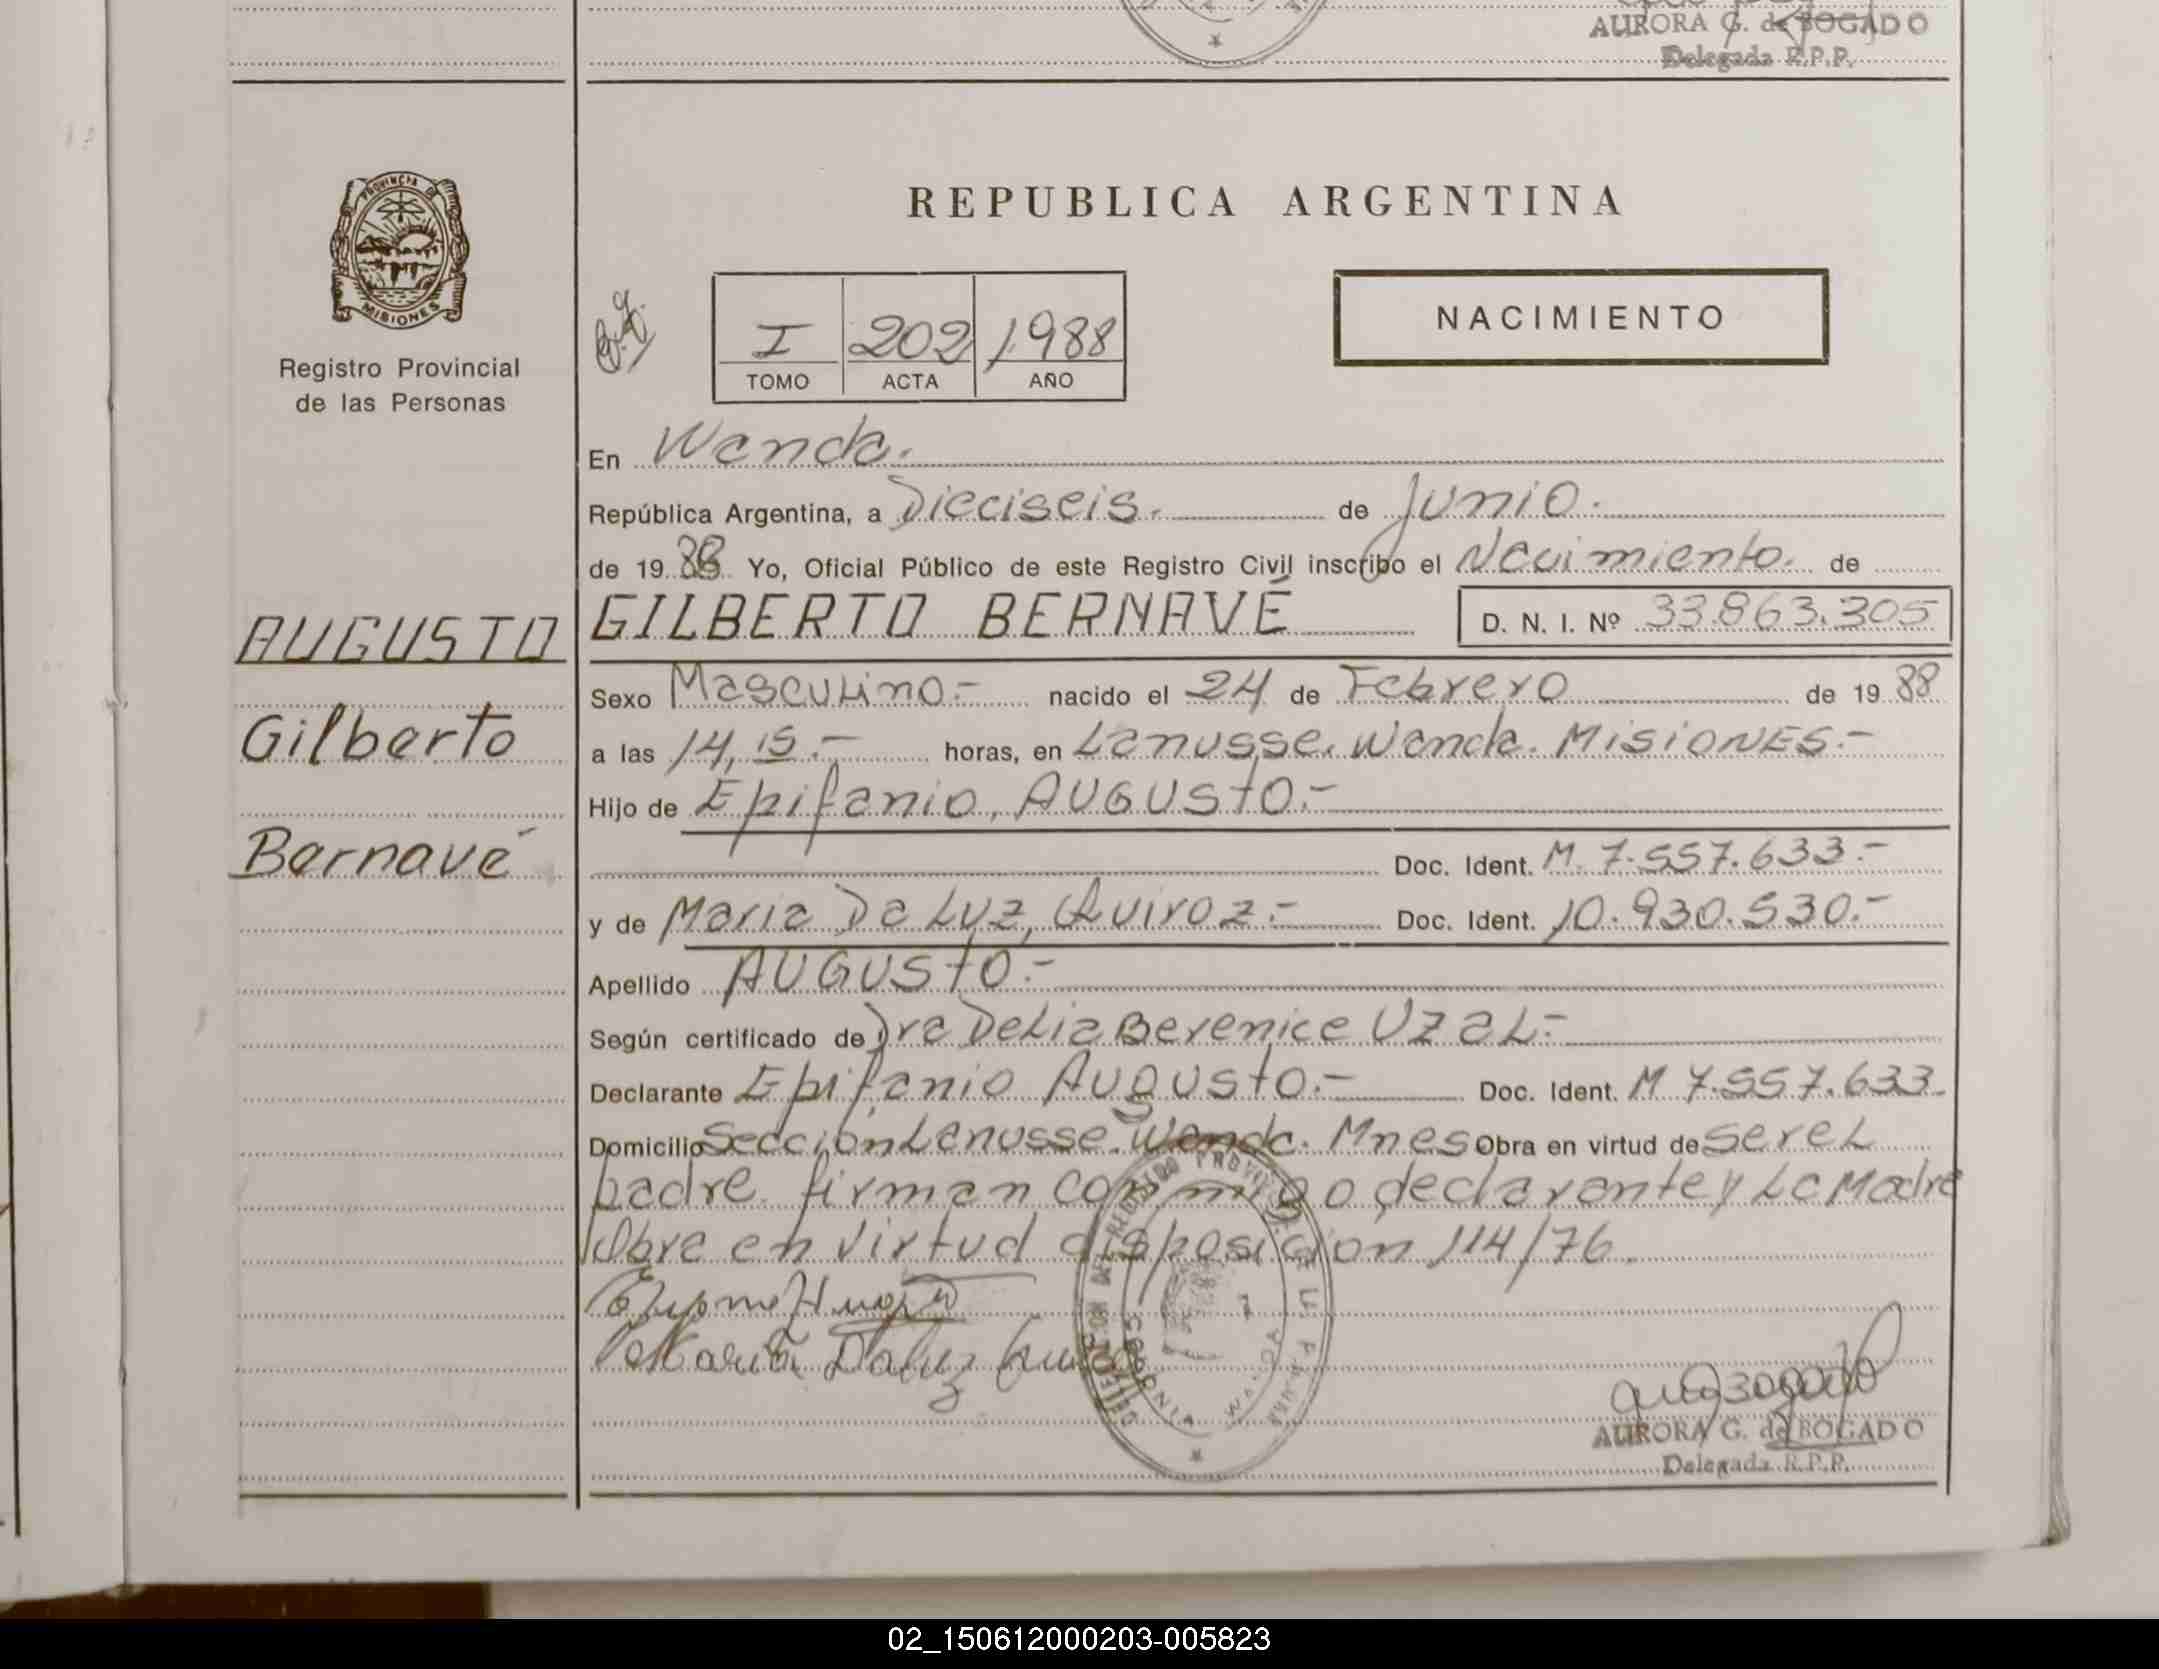 AURORA G. de BOGADO
Delegada R.P.P.
PROVINCIA DE
MISIONES
Registro Provincial
de las Personas
REPUBLICA ARGENTINA
I 202 1988
TOMO ACTA AÑO
NACIMIENTO
En Wanda.
República Argentina, a Dieciseis. de Junio.
de 1988 Yo, Oficial Público de este Registro Civil inscribo el Nacimiento. de
AUGUSTO
Gilberto
Bernavé
GILBERTO BERNAVÉ D. N. I. Nº 33.863.305
Sexo Masculino.- nacido el 24 de Febrero de 1988
a las 14,15.- horas, en Lanusse. Wanda. MISIONES.-
Hijo de Epifanio, AUGUSTO.-
Doc. Ident. M. 7.557.633.-
y de Maria Da Luz, Quiroz.- Doc. Ident. 10.930.530.-
Apellido AUGUSTO.-
Según certificado de Dra Delia Berenice UZAL.-
Declarante Epifanio Augusto.- Doc. Ident. M 7.557.633
Domicilio Sección Lanusse. Wanda. Mnes Obra en virtud de ser el
padre. firman conmigo declarante y La Madre
Obra en virtud disposición 114/76.
Maria Daluz
AURORA G. de BOGADO
Delegada R.P.P.
02_150612000203-005823